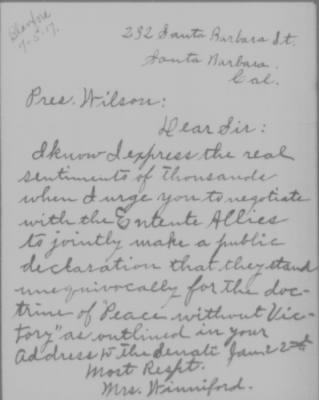 7.5.17.
232 Santa Barbara St.
Santa Barbara.
Cal.
Pres. Wilson:
Dear Sir:
I know I express the real
sentiments of thousands
when I urge you to negotiate
with the Entente Allies
to jointly make a public
declaration that they stand
unequivocally for the doc-
trine of "Peace without Vic-
tory" as outlined in your
Address to the Senate Jan. 22nd
Most Respt.
Mrs. Winniford.